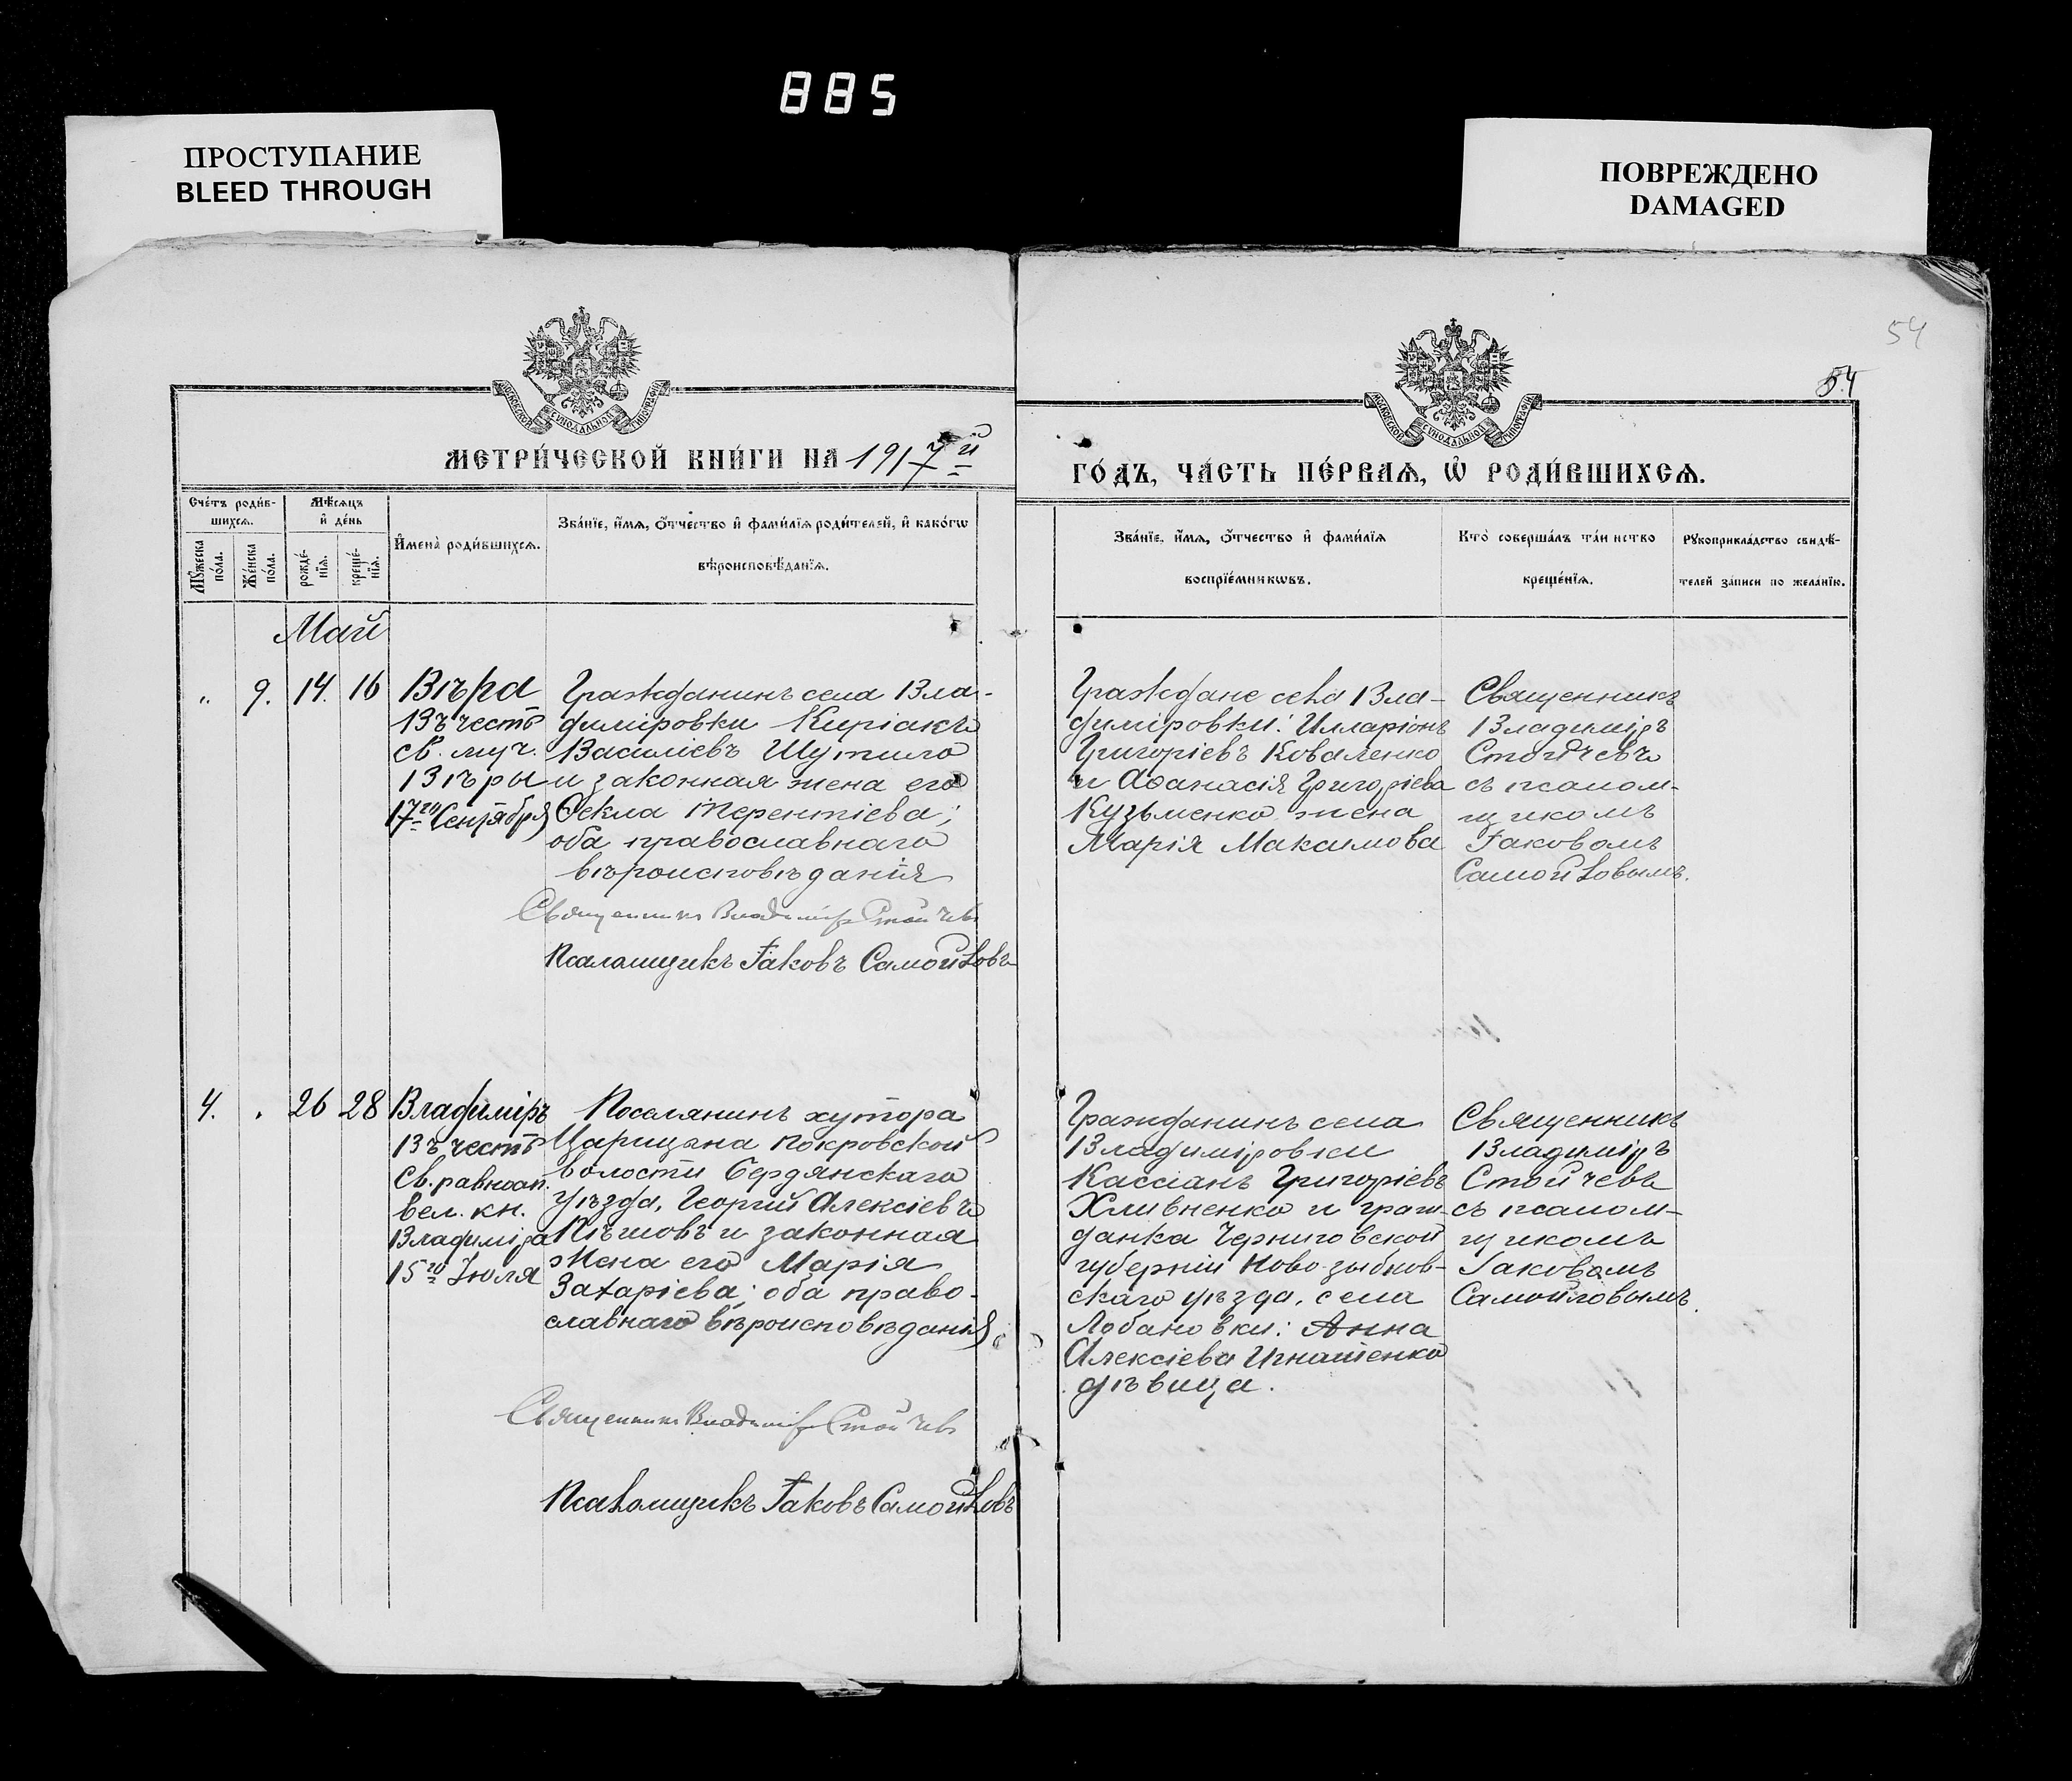 885
ПРОСТУПАНИЕ
BLEED THROUGH
ПОВРЕЖДЕНО
DAMAGED
54
54
МОСКОВСКОЙ СУНОДАЛЬНОЙ ТИПОГРАФІИ
МОСКОВСКОЙ СУНОДАЛЬНОЙ ТИПОГРАФІИ
МЕТРИ́ЧЕСКОЙ КНИ́ГИ НА 1917й
ГО́ДЪ, ЧА́СТЬ ПЕ́РВАѦ, Ѽ РОДИ́ВШИХСѦ.
Сче́тъ роди́в-
шихсѧ.
Мѣ́сѧцъ
и҆ де́нь
Мꙋ́жеска
по́ла.
Же́нска
по́ла.
рожде́-
нїѧ.
креще́-
нїѧ.
И҆мена̀ роди́вшихсѧ.
Зва́нїе, и҆́мѧ, ѻ҆́тчество и҆ фами́лїѧ роди́телей, и҆ како́гѡ
вѣроисповѣ́данїѧ.
Зва́нїе, и҆́мѧ, ѻ҆́тчество и҆ фами́лїѧ
воспрїе́мникѡвъ.
Кто̀ соверша́лъ та́инство
креще́нїѧ.
Рꙋкоприкла́дство свидѣ́-
телей за́писи по жела́нїю.
Май
„ 9. 14. 16
Вѣра
Въ честь
св. муч.
Вѣры
17го Сентября
Гражданинъ села Вла-
диміровки Киріакъ
Василіевъ Шутило
и законная жена его
Ѳекла Терентіева;
оба православнаго
вѣроисповѣданія
Священникъ Владиміръ Стойчевъ
Псаломщикъ Іаковъ Самойловъ
Граждане села Вла-
диміровки: Илларіонъ
Григоріевъ Коваленко
и Аѳанасія Григоріева
Кузьменко жена
Марія Максимова
Священникъ
Владиміръ
Стойчевъ
съ псалом-
щикомъ
Іаковомъ
Самойловымъ.
4. „ 26 28
Владиміръ
Въ честь
Св. равноап.
вел. кн.
Владиміра
15го Іюля
Поселянинъ хутора
Царицына Покровской
волости Бердянскаго
уѣзда, Георгій Алексіевъ
Пѣшовъ и законная
жена его Марія
Захаріева; оба право-
славнаго вѣроисповѣданія.
Священникъ Владиміръ Стойчевъ
Псаломщикъ Іаковъ Самойловъ
Гражданинъ села
Владиміровки
Кассіанъ Григоріевъ
Хливненко и граж-
данка Черниговской
губерніи Ново-зыбков-
скаго уѣзда, села
Лобановки: Анна
Алексіева Игнатенко
дѣвица.
Священникъ
Владиміръ
Стойчевъ
съ псалом-
щикомъ
Іаковомъ
Самойловымъ.